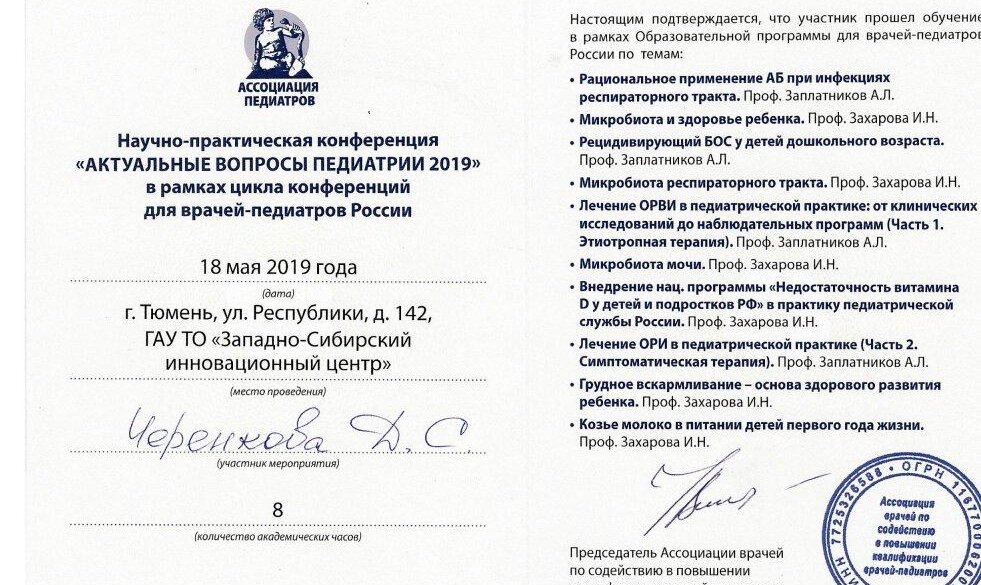 АССОЦИАЦИЯ
ПЕДИАТРОВ
Научно-практическая конференция
«АКТУАЛЬНЫЕ ВОПРОСЫ ПЕДИАТРИИ 2019»
в рамках цикла конференций
для врачей-педиатров России
18 мая 2019 года
(дата)
г. Тюмень, ул. Республики, д. 142,
ГАУ ТО «Западно-Сибирский
инновационный центр»
(место проведения)
Черенкова Д.С.
(участник мероприятия)
8
(количество академических часов)
Настоящим подтверждается, что участник прошел обучение
в рамках Образовательной программы для врачей-педиатров
России по темам:
• Рациональное применение АБ при инфекциях
респираторного тракта. Проф. Заплатников А.Л.
• Микробиота и здоровье ребенка. Проф. Захарова И.Н.
• Рецидивирующий БОС у детей дошкольного возраста.
Проф. Заплатников А.Л.
• Микробиота респираторного тракта. Проф. Захарова И.Н.
• Лечение ОРВИ в педиатрической практике: от клинических
исследований до наблюдательных программ (Часть 1.
Этиотропная терапия). Проф. Заплатников А.Л.
• Микробиота мочи. Проф. Захарова И.Н.
• Внедрение нац. программы «Недостаточность витамина
D у детей и подростков РФ» в практику педиатрической
службы России. Проф. Захарова И.Н.
• Лечение ОРИ в педиатрической практике (Часть 2.
Симптоматическая терапия). Проф. Заплатников А.Л.
• Грудное вскармливание – основа здорового развития
ребенка. Проф. Захарова И.Н.
• Козье молоко в питании детей первого года жизни.
Проф. Захарова И.Н.
Председатель Ассоциации врачей
по содействию в повышении
ИНН 7725326588 • ОГРН
Ассоциация
врачей по
содействию
в повышении
квалификации
врачей-педиатров